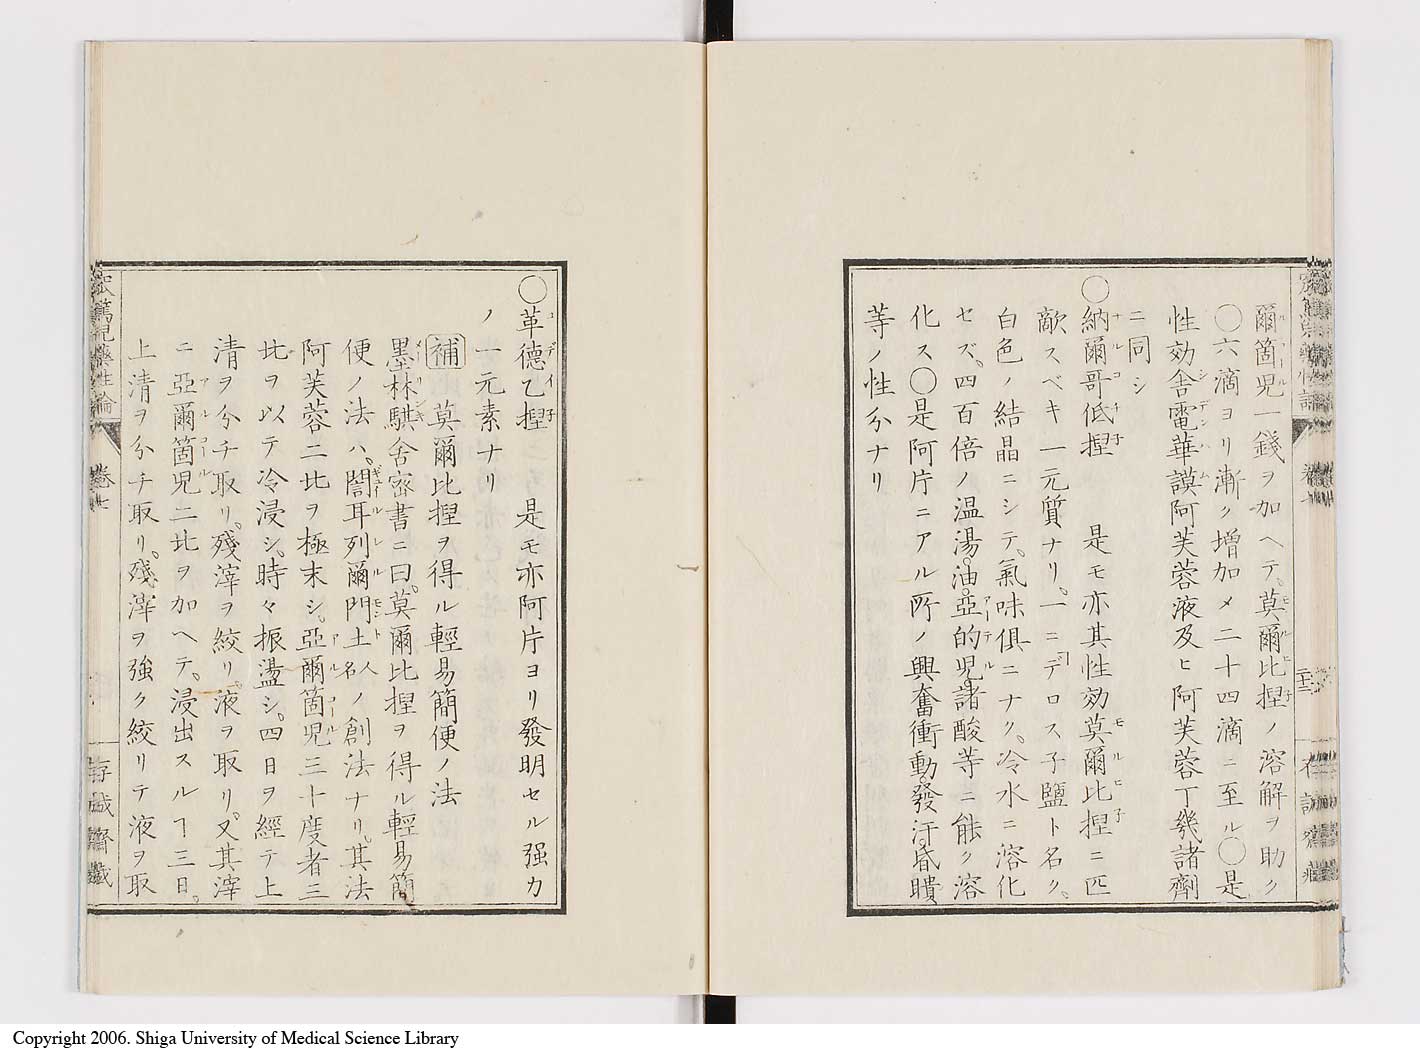 爾箇児一錢ヲ加ヘテ。莫爾比捏ノ溶解ヲ助ク
〇六滴ヨリ漸ク増加メ二十四滴ニ至ル〇是
性効舎電華謨阿芙蓉液及ヒ阿芙蓉丁幾諸劑
ニ同シ
〇納爾哥低捏　是モ亦其性効莫爾比捏ニ匹
敵スベキ一元質ナリ。一ニデロスネ鹽ト名ク。
白色ノ結晶ニシテ。氣味俱ニナク。冷水ニ溶化
セズ。四百倍ノ温湯。油。亞的児。諸酸等ニ能ク溶
化ス〇是阿片ニアル所ノ興奮衝動。發汗。昏瞶
等ノ性分ナリ
〇革德乙捏　是モ亦阿片ヨリ發明セル强力
ノ一元素ナリ
補　莫爾比捏ヲ得ル輕易簡便ノ法
墨林騏舎密書ニ曰。莫爾比捏ヲ得ル輕易簡
便ノ法ハ。誾耳列爾門土人名ノ創法ナリ。其法
阿芙蓉二比ヲ極末シ。亞爾箇児三十度者三
比ヲ以テ冷浸シ。時々振盪シ。四日ヲ經テ上
清ヲ分チ取リ。殘滓ヲ絞リ。液ヲ取リ。又其滓
ニ亞爾箇児二比ヲ加ヘテ。浸出スルヿ三日。
上清ヲ分チ取リ。殘滓ヲ強ク絞リテ液ヲ取
藥性論
卷七
存誠齋藏
Copyright 2006. Shiga University of Medical Science Library